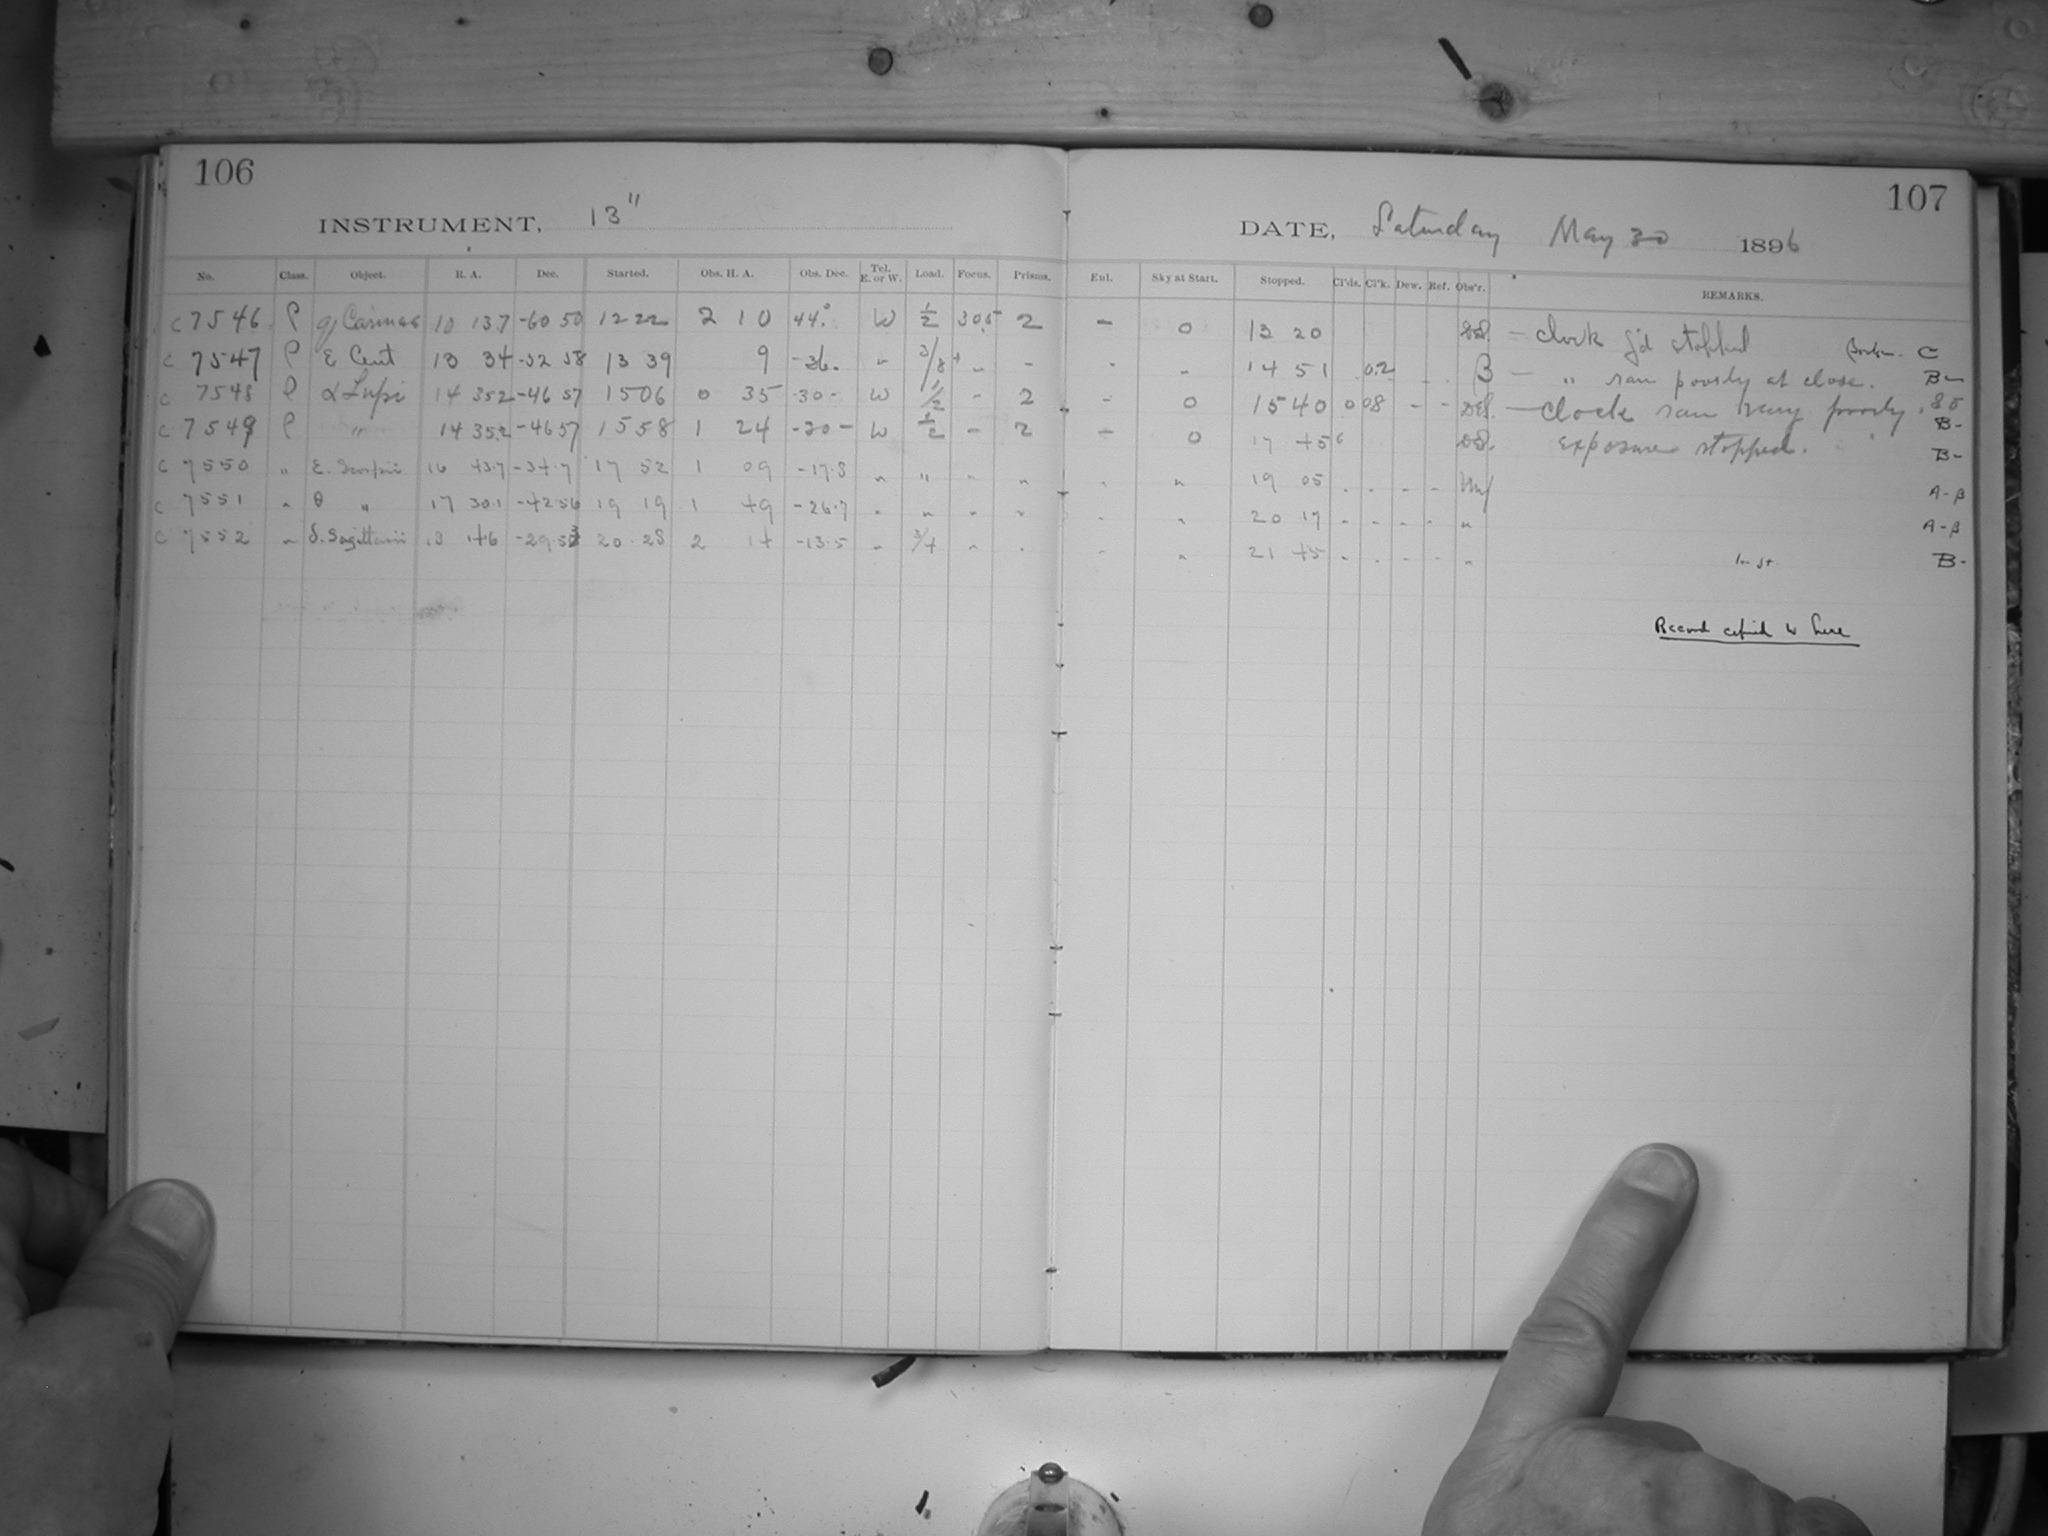 106
107
INSTRUMENT, 13"
DATE, Saturday May 30 1896
No. Class. Object. R. A. Dec. Started. Obs. H. A. Obs. Dec. Tel. E. or W. Load. Focus. Prisms. Eul. Sky at Start. Stopped. Cl'ds. Cl'k. Dew. Ref. Obs'r. REMARKS.
C 7546 P q Carinae 10 13.7 -60 50 12 22 2 10 44° W 1/2 30.5 2 - 0 13 20 - clock g'd stopped C
C 7547 P E Cent 13 34 -52 58 13 39 9 -36. " 3/8 " - - " 14 51 0.2 B - " ran poorly at close. B-
C 7548 P α Lupi 14 35.2 -46 57 15 06 0 35 -30- W 1/2 - 2 - 0 15 40 0 08 - - - clock ran very poorly.
C 7549 P " 14 35.2 -46 57 15 58 1 24 -30- W 1/2 - 2 - 0 17 45 exposure stopped. B-
C 7550 " E. Scorpii 16 43.7 -34.7 17 52 1 09 -17.8 " " " " " " 19 05 - - - - B-
C 7551 " θ " 17 30.1 -42 56 19 19 1 49 -26.7 " " " " " " 20 17 - - - - " A-B
C 7552 " δ. Sagittarii 18 14.6 -29.53 20 28 2 14 -13.5 " 3/4 " " " " 21 45 - - - - " B-
Record copied to here